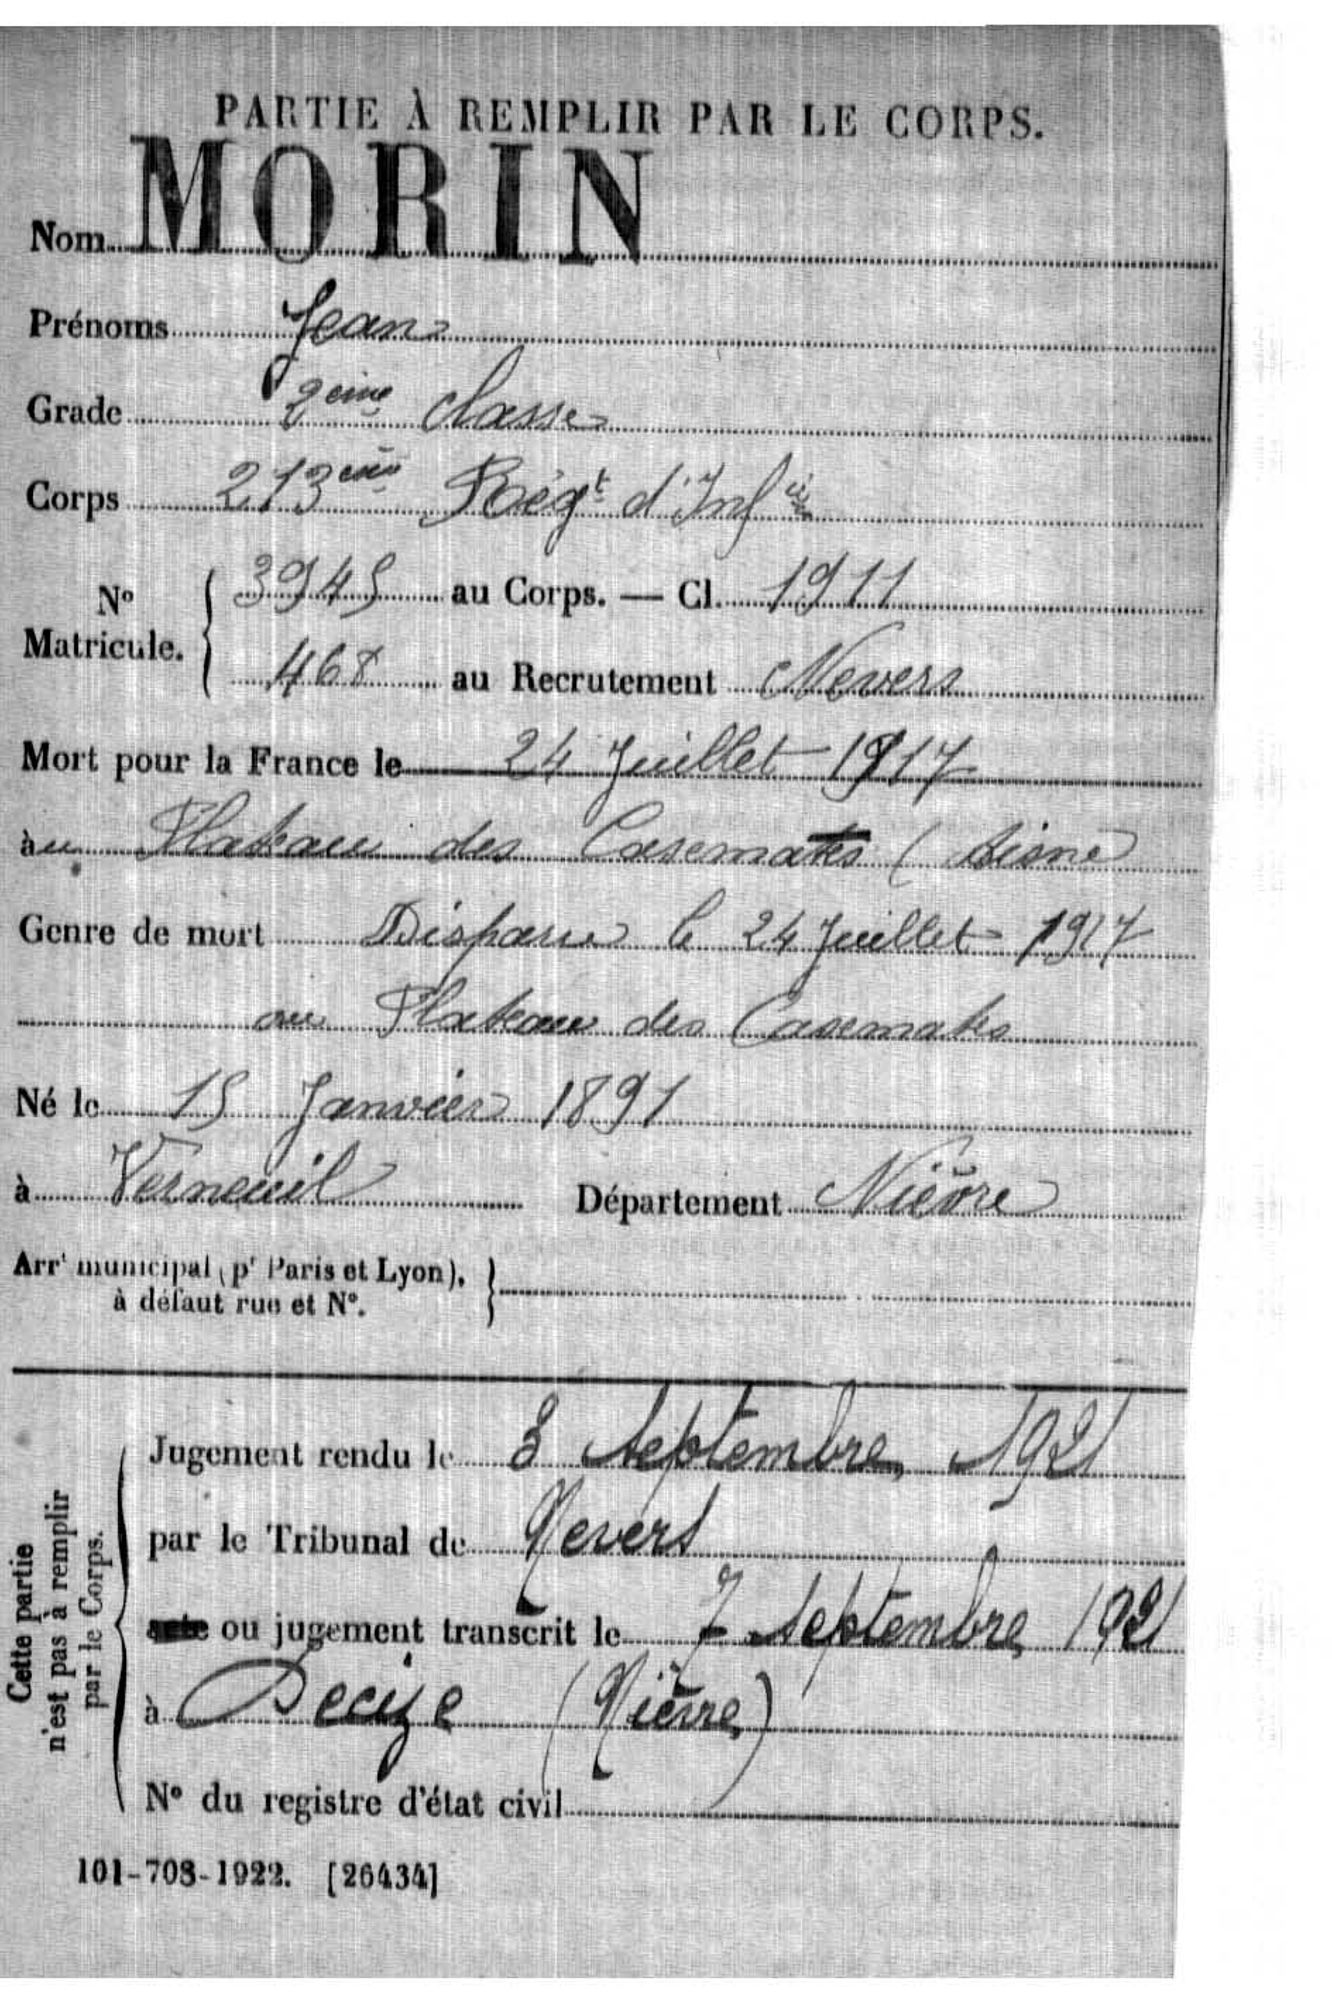 PARTIE À REMPLIR PAR LE CORPS.
Nom MORIN
Prénoms Jean
Grade 2eme classe
Corps 213eme Régt d'Infie
No Matricule. { 3945 au Corps. — Cl. 1911
468 au Recrutement Nevers
Mort pour la France le 24 Juillet 1917
àu Plateau des Casemates (Aisne
Genre de mort Disparu le 24 Juillet 1917
au Plateau des Casemates
Né le 15 Janvier 1891
à Verneuil Département Nièvre
Arrt municipal (pr Paris et Lyon), }
à défaut rue et No.
Cette partie
n'est pas à remplir
par le Corps.
Jugement rendu le 3 Septembre 1921
par le Tribunal de Nevers
acte ou jugement transcrit le 7 Septembre 1921
à Decize (Nièvre)
No du registre d'état civil
101-708-1922. [26434]